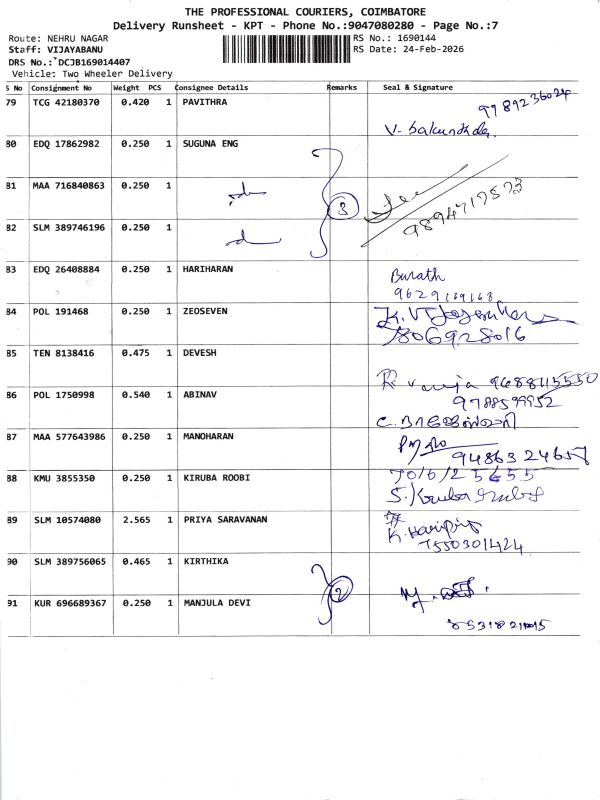 THE PROFESSIONAL COURIERS, COIMBATORE
Delivery Runsheet - KPT - Phone No.:9047080280 - Page No.:7
Route: NEHRU NAGAR
RS No.: 1690144
Staff: VIJAYABANU
RS Date: 24-Feb-2026
DRS No.: DCJB169014407
Vehicle: Two Wheeler Delivery
S No Consignment No Weight PCS Consignee Details Remarks Seal & Signature
79 TCG 42180370 0.420 1 PAVITHRA
80 EDQ 17862982 0.250 1 SUGUNA ENG
81 MAA 716840863 0.250 1 3
9894717573
82 SLM 389746196 0.250 1
83 EDQ 26408884 0.250 1 HARIHARAN Barath
84 POL 191468 0.250 1 ZEOSEVEN
85 TEN 8138416 0.475 1 DEVESH
86 POL 1750998 0.540 1 ABINAV
87 MAA 577643986 0.250 1 MANOHARAN
88 KMU 3855350 0.250 1 KIRUBA ROOBI
89 SLM 10574080 2.565 1 PRIYA SARAVANAN
7550301424
90 SLM 389756065 0.465 1 KIRTHIKA 2
91 KUR 696689367 0.250 1 MANJULA DEVI